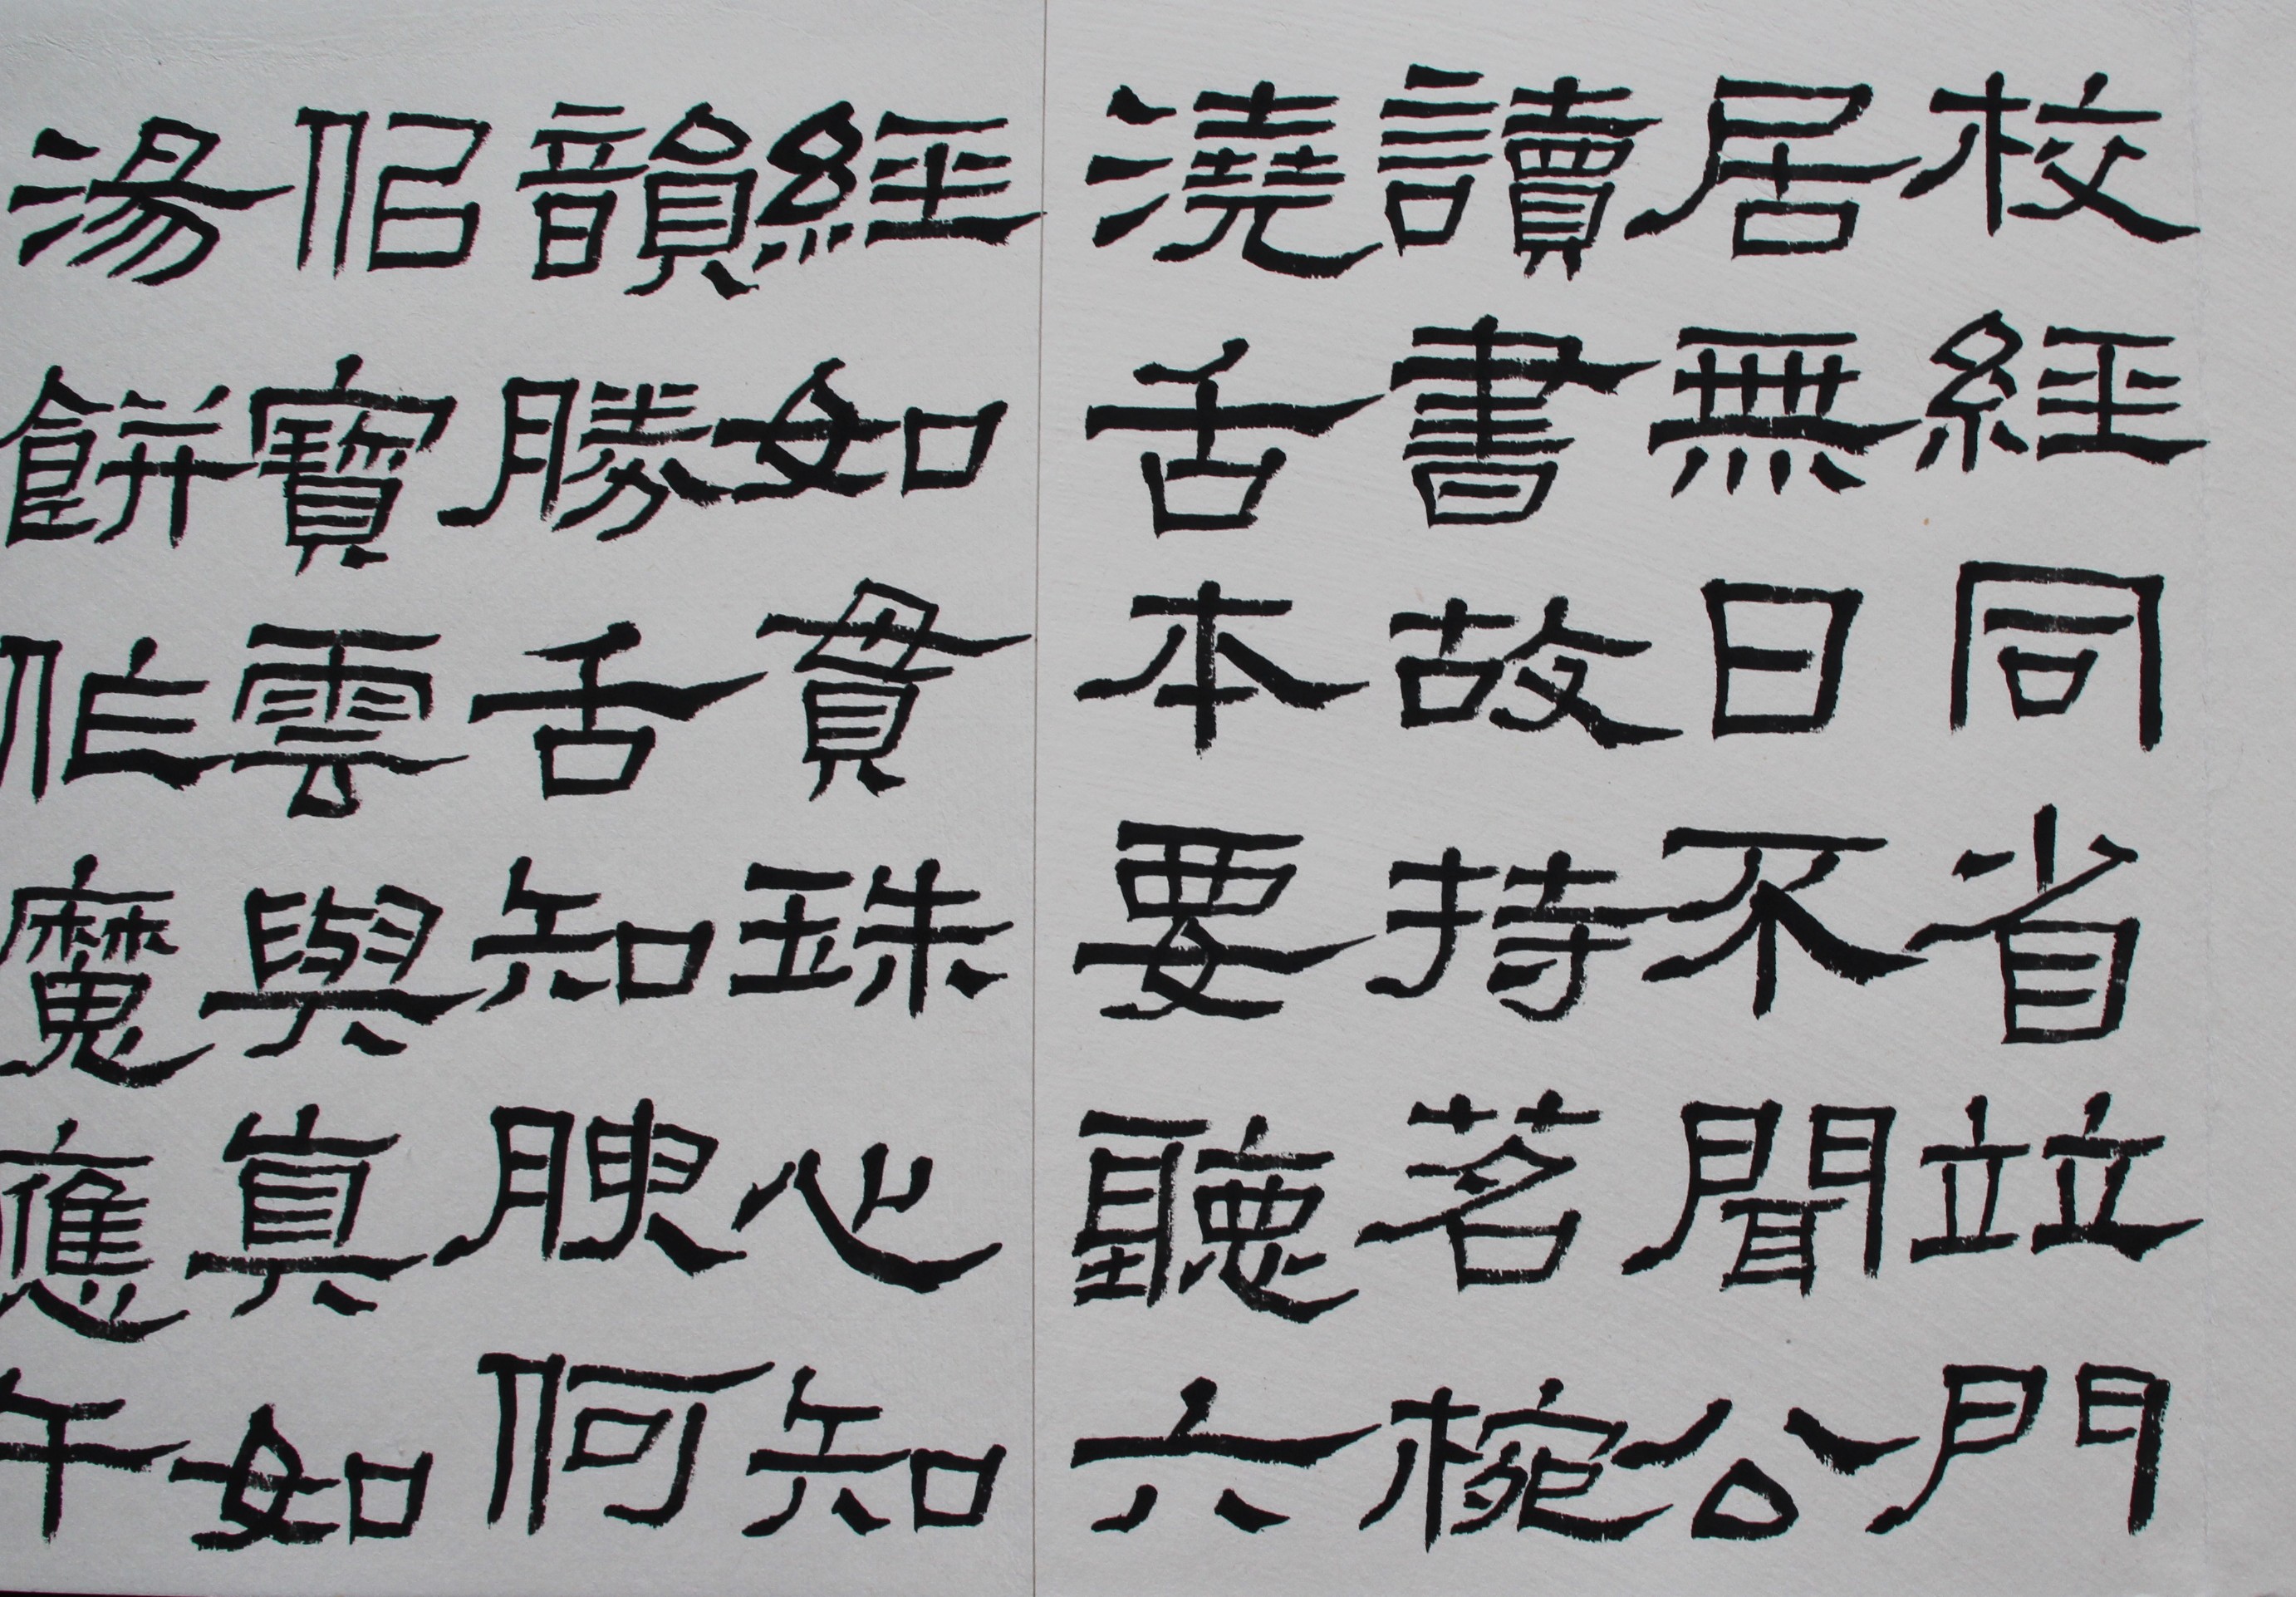 校經同省竝門
居無日不聞公
讀書故持茗椀
澆舌本要聽六
經如貫珠心知
韻勝舌知腴何
佀寶雲與真如
湯餅作魔應午